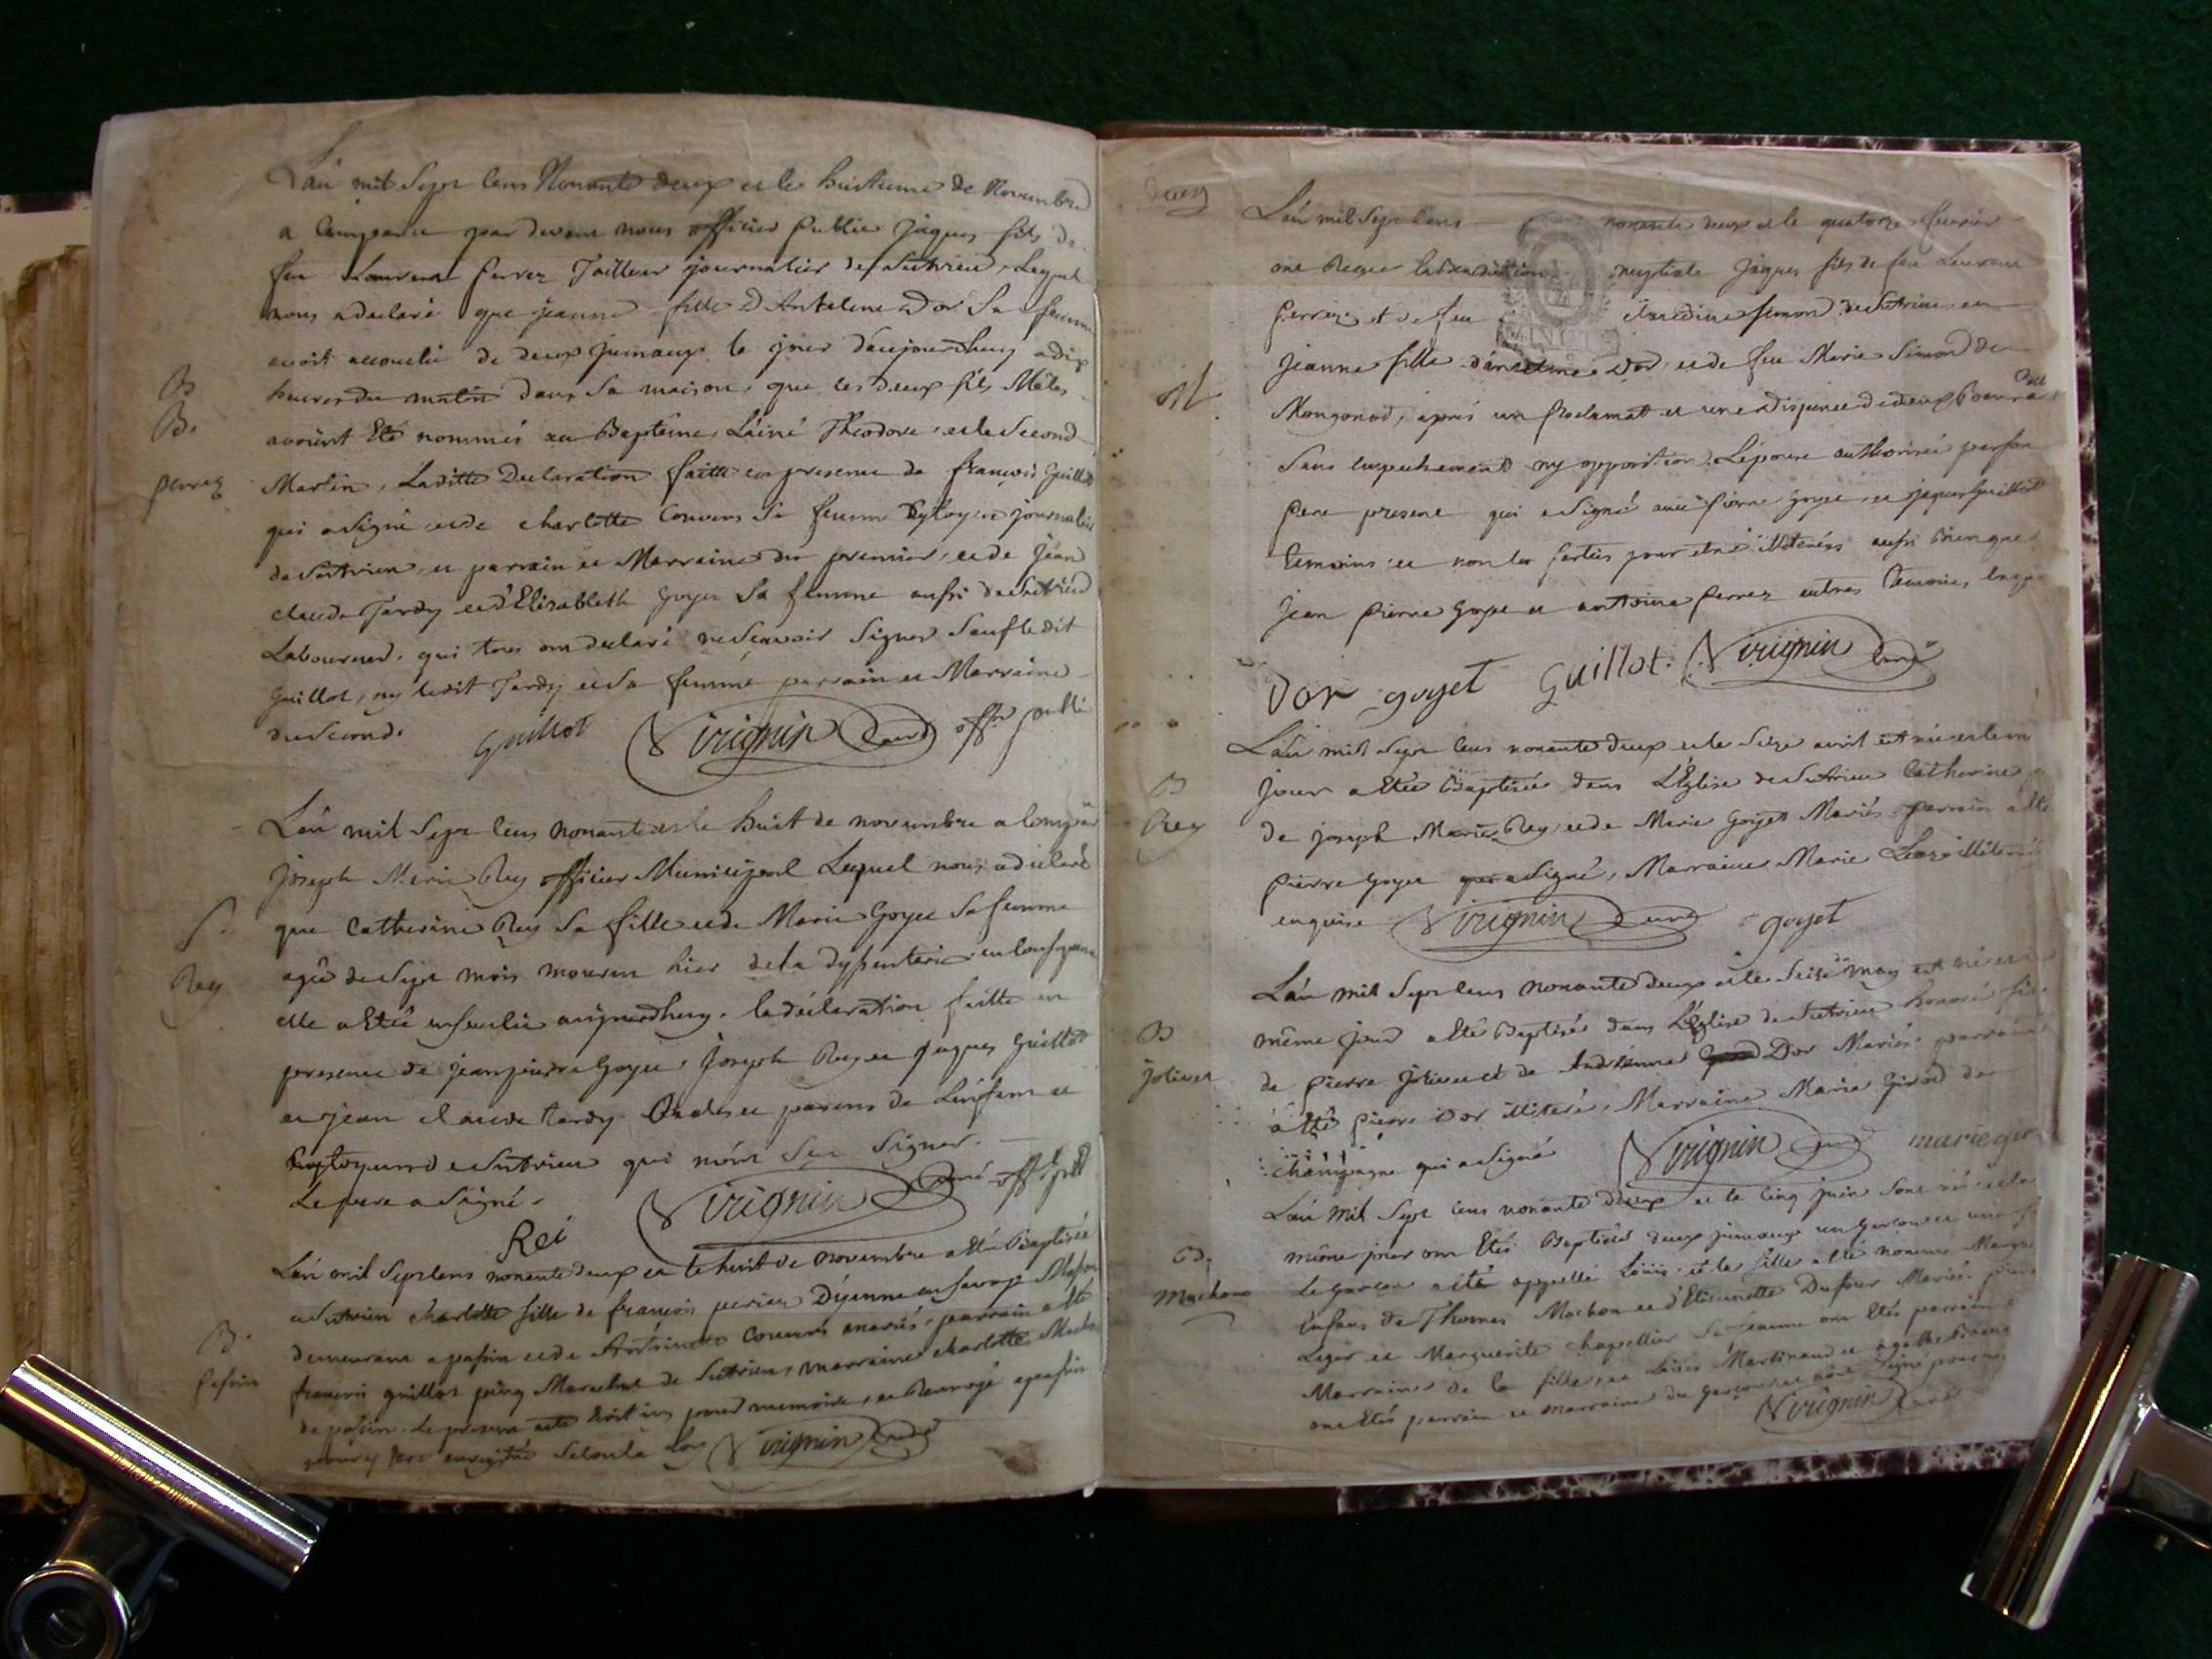 L'an mil Sept Cens Nonante deux et le huitieme de Novembre
a Comparu par devant nous officier Public Jâques fils de
feu Laurent perrez Tailleur journalier de Sutrieu, Lequel
nous a declaré que jeanne fille D'Antelme Dor Sa femme
avoit accouché de deux Jumaux le jour d'aujourdhuy a dix
heures du matin dans Sa maison, que les deux fils Mâles
B
B.
avoint Eté nommés au Baptême, L'ainé Théodore, et le Second
perrez
Martin, Laditte Declaration faitte en presence de françois Guillot
qui a Signé et de charlotte Convers Sa femme Cytoyens journaliers
de Sutrieu, et parrain et Marraine du premier, et de Jean
claude Tardy et d'Elizabeth Goyet Sa femme aussi de Sutrieu
Laboureurs, qui tous ont declaré ne Sçavoir Signer Sauf ledit
Guillot, ny ledit Tardy et Sa femme parrain et Marraine
du Second.
Guillot Virignin Curé offr public
L'an mil Sept Cens nonante et le huit de novembre a Compar
Joseph Marie Rey officier Municipal Lequel nous a declaré
S.
que Catherine Rey Sa fille et de Marie Goyet Sa femme
Rey
agée de Sept mois mourut hier de la dyssenterie, en consequence
elle a Eté ensevelie aujourdhuy. la déclaration faitte en
presence de jean pierre Goyet, Joseph Rey et Jaques Guillot
et jean claude tardy Oncles et parens de L'enfant et
Cytoyens de Sutrieu qui n'ont Sçu Signer.
Le pere a Signé.
Rei Virignin Curé off. publ.
L'an mil Sept cens nonante deux et le huit de novembre a Eté Baptisée
a Sutrieu charlotte fille de françois
B.
demeurant a passin et de Convers mariés, parrain a Eté
passin
françois guillot Marechal de Sutrieu, marraine charlotte
de passin. Le present acte Ecrit icy pour memoire, et Renvoyé a passin
pour y être enregitré Selon la Loy Virignin Curé
deux
L'an mil Sept Cens nonante deux et le quatorze fevrier
ont Reçu la benediction nuptiale Jâques fils de feu Laurent
perrez et de feu claudine Simon de Sutrieu, et
Jeanne fille d'antelme Dor, et de feu Marie Simond de
M.
Mongonod, aprés un proclamat et une dispence de deux
Sans empechement ny opposition. L'épouse authorisée par son
Pere present qui a Signé avec pierre goyet, et jâques Guillot
temoins et non les parties pour etre illiterées aussi bien que
Jean Pierre Goyet et antoine perrez autres temoins,
Dor goyet Guillot. Virignin Curé
L'an mil Sept cens nonante deux et le Seize avril est née et le m
B
jour a Etée Baptisée dans L'Eglise de Sutrieu Catherine
Rey
de joseph Marie Rey, et de Marie Goyet Mariés. parrain a Eté
pierre Goyet a Signé, Marraine Marie illiterée
enquise Virignin Curé goyet
L'an mil Sept cens nonante deux et le Seize may est né et le
B
même jour a Eté Baptisé dans L'Eglise de Sutrieu honoré fils
joliuet
de pierre Joliuet et de Andréanne Dor Mariés. parrain
a Eté pierre Dor illiteré, Marraine Marie Girod de
champagne qui a Signé Virignin Curé marie gir
L'an mil Sept cens nonante deux et le Cinq juin Sont nés et le
même jour ont Etés Baptisés deux jumaux un garçon et une f
B.
Le garçon a été appellé Loüis, et la fille a Eté nommé Margue
Machon
Enfans de Thomas Machon et d'Etiennette Dufour Mariés. pierre
Léger et Marguerite chapellier Sa femme ont Etés parrain
Marraine de la fille, et Loüis Martinand et agathe
ont Etés parrain et marraine du garçon et n'ont Signé pour
Virignin Curé